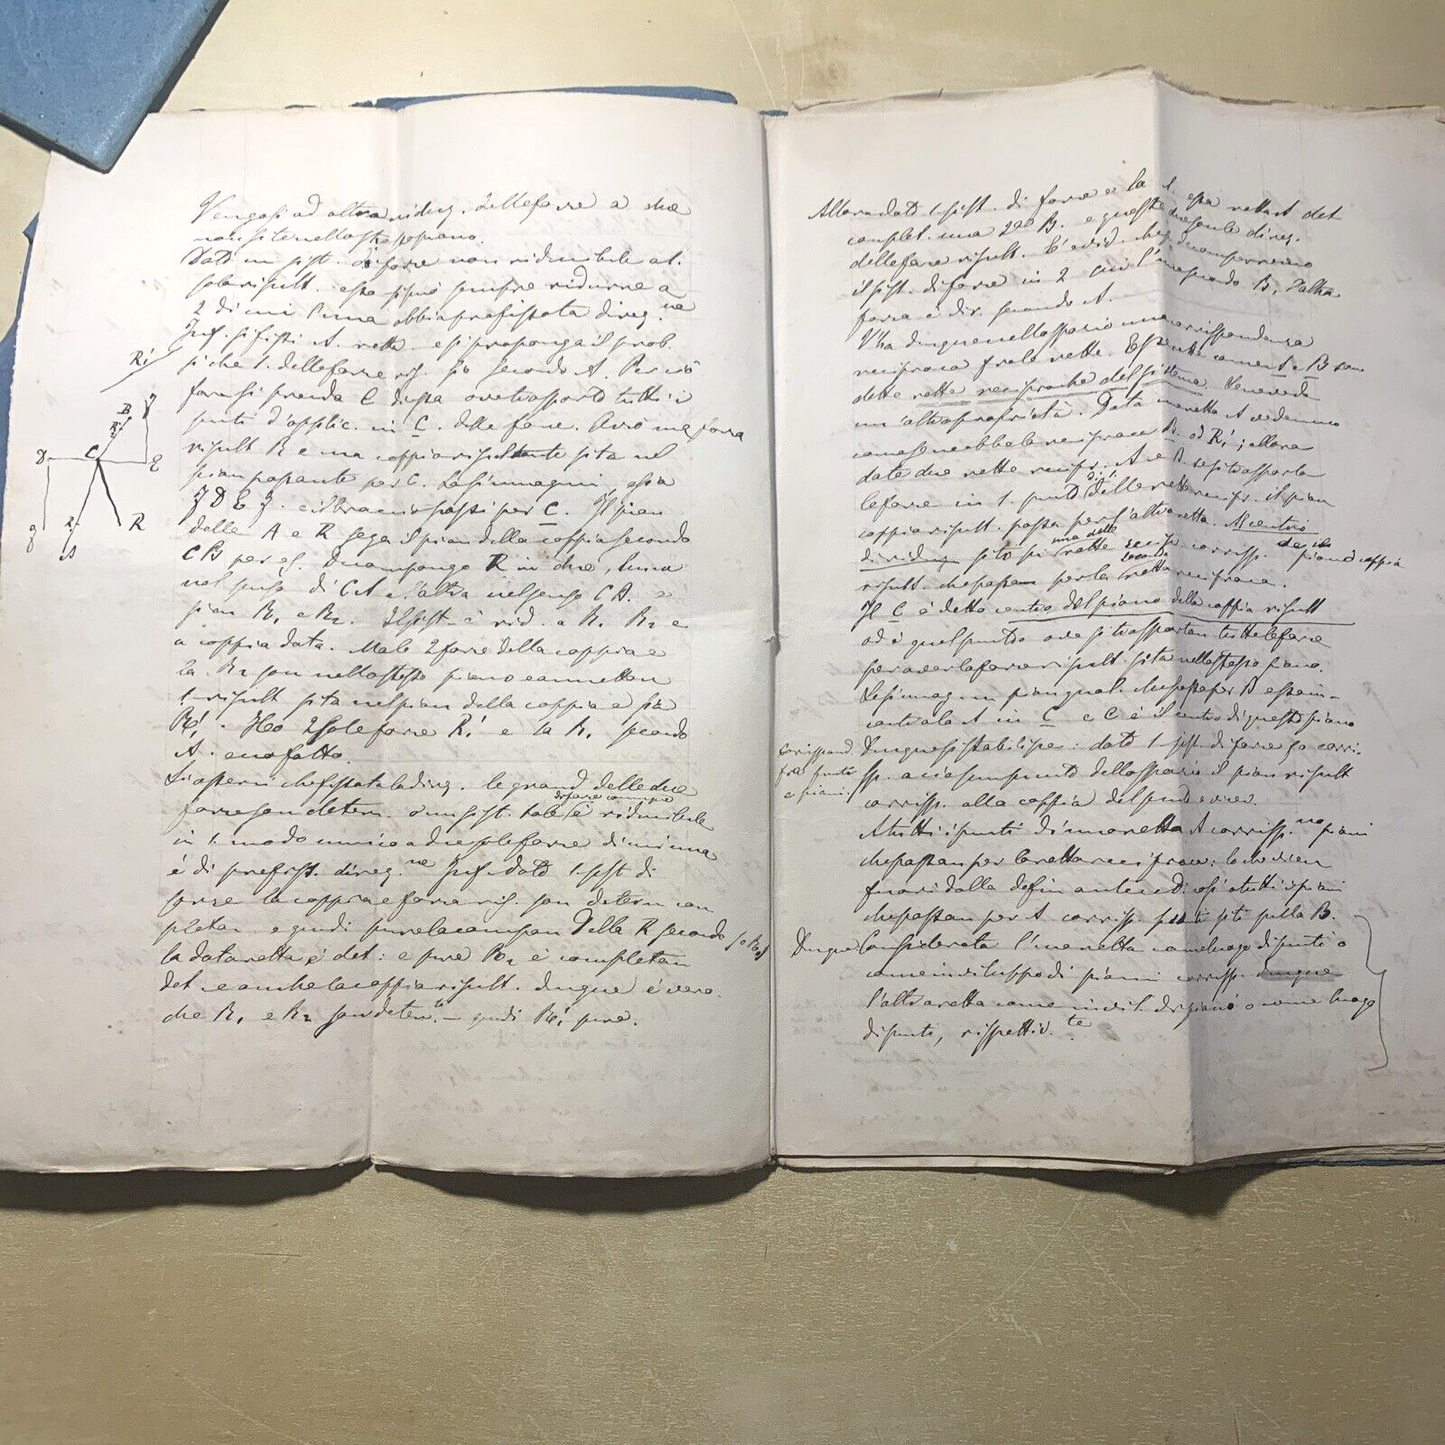 Vengasi ad altra riduz. delle forze a due
non site nello stesso piano.
Dato un sist. di forze non riducibile ad 1.
sola risult. essa si può sempre ridurre a
2 di cui l'una abbia prefissata direz.ne
Inf. si fissi A. retta e si proponga il prob.
si che 1. delle forze ris. sia secondo A. Per ciò
farsi prenda C su essa ove trasporto tutti i
punti d'applic. in C. delle forze. Avrò una forza
risult R e una coppia risultante sita nel
pian passante per C. La si immagini, essa
e il braccio passi per C. Il pian
delle A e R sega il pian della coppia secondo
CB per es. Decompongo R in due, l'una
nel senso di CA e l'altra nel senso CB.
sian R₁ e R₂. Il sist. è rid. a R₁ R₂ e
a coppia data. Ma le 2 forze della coppia e
la R₂ son nello stesso piano e ammetton
1. risult sita nel pian della coppia e sia
R'. Ho 2 sole forze R' e la R₁ secondo
A. e ho fatto.
Si osservi che fissata la direz. le grand. delle due
forze son determ. o un sist. tale di forze è riducibile
in 1. modo unico a due sole forze di cui una
è di prefiss. direz.ne Inf. dato 1. sist di
forze la coppia e forza ris. son determ com
pletam e quindi pure la compon della R secondo
la data retta è det: e pure R₂ è completam
det. e anche la coppia risult. dunque è vero
che R₁ e R₂ son determ.te quindi R' pure.
R'
B
R₂
C
D
E
R₁
R
A
Allora dato 1. sist. di forze e la 1. essa retta è det
complet. una 2da B. e queste due sono le direz.
delle forze risult. È evid. che decomporremo
il sist. di forze in 2 cui l'una secondo B, l'altra
forza è dir. secondo A.
V'ha dunque nello spazio una corrispondenza
reciproca fra le rette. Esattamente A e B son
dette rette reciproche del sistema. Venendo
un'altra proprietà. Data una retta A vedemmo
come se ne abbia la reciproca B. od R'; allora
date due rette recipr. A e B se si trasporta
le forze in 1. punto di 1. delle rette recipr. il pian
coppia risult. passa per l'altra retta. Al centro
di riduz. sito su una delle rette recipr. corrisp. il piano coppia
risult. che passa per la seconda retta reciproca.
Il C è detto centro del piano della coppia risult
od è quel punto ove si trasportan tutte le forze
per aver la forza risult. sita nello stesso piano.
La si immagini pian qual. che passa per B essa in-
contra la A in C e C è il centro di questo piano
Corrispond.
fra punti
e piani.
Dunque si stabilisce: dato 1. sist. di forze so corri-
sp. a ciascun punto dello spazio il pian risult
corrisp. alla coppia del punto e vicev.
A tutti i punti di una retta A corrisp.no piani
che passan per la retta reciproca: lo che vien
fuori dalla defin anteced. così a tutti i piani
che passan per A corrisp. punti siti sulla B.
Dunque Considerata l'una retta come luogo di punti o
come inviluppo di piani corrisp. dunque
l'altra retta come invil. di piani o come luogo
di punti, rispettiv.te